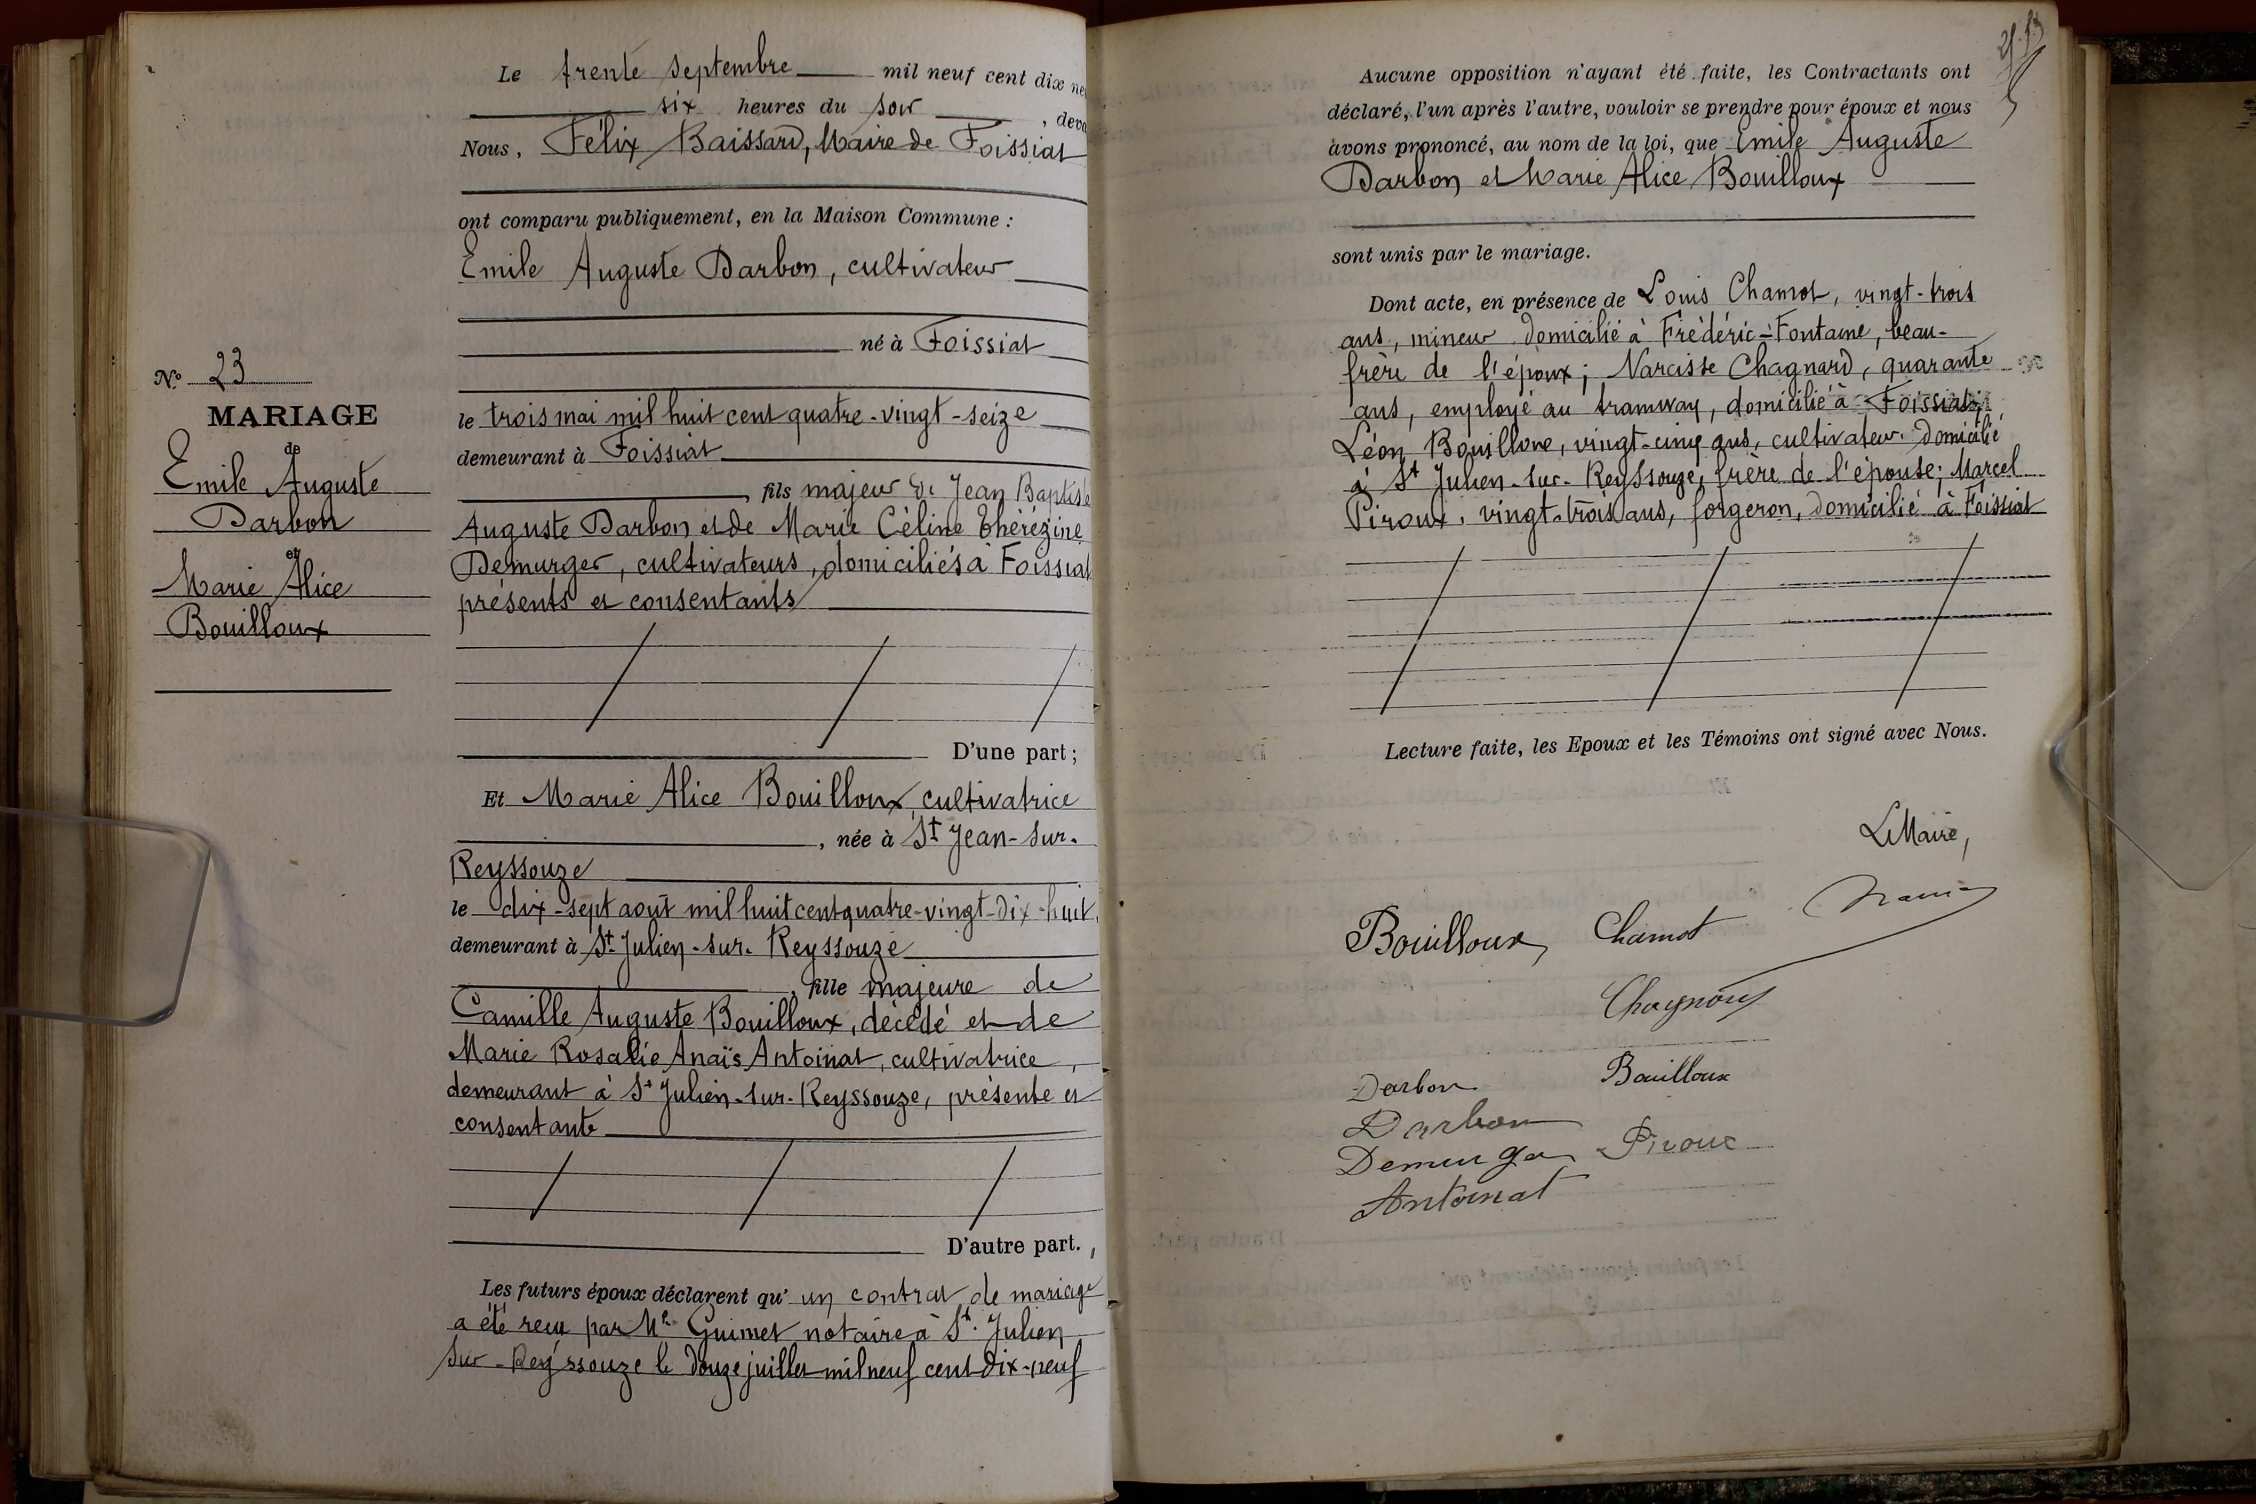 Le trente septembre mil neuf cent dix neu
six heures du soir , deva
Nous, Félix Baissard, Maire de Foissiat
ont comparu publiquement, en la Maison Commune :
Emile Auguste Darbon, cultivateur
né à Foissiat
le trois mai mil huit cent quatre-vingt-seize
demeurant à Foissiat
, fils majeur de Jean Baptiste
Auguste Darbon et de Marie Céline Thérézine
Demurger, cultivateurs, domiciliés à Foissiat
présents et consentants
D'une part ;
Et Marie Alice Bouilloux, cultivatrice
, née à St Jean-sur-
Reyssouze
le dix-sept août mil huit cent quatre-vingt-dix-huit,
demeurant à St Julien-sur-Reyssouze
, fille majeure de
Camille Auguste Bouilloux, décédé et de
Marie Rosalie Anaïs Antoinat, cultivatrice,
demeurant à St Julien-sur-Reyssouze, présente et
consentante
D'autre part.,
Les futurs époux déclarent qu'un contrat de mariage
a été reçu par Me Guimet notaire à St. Julien
sur-Reyssouze le douze juillet mil neuf cent dix-neuf
No 23
MARIAGE
de
Emile Auguste
Darbon
et
Marie Alice
Bouilloux
Aucune opposition n'ayant été faite, les Contractants ont
déclaré, l'un après l'autre, vouloir se prendre pour époux et nous
avons prononcé, au nom de la loi, que Emile Auguste
Darbon et Marie Alice Bouilloux
sont unis par le mariage.
Dont acte, en présence de Louis Chamot, vingt-trois
ans, mineur domicilié à Frédéric-Fontaine, beau-
frère de l'époux ; Narcisse Chagnard, quarante
ans, employé au tramway, domicilié à Foissiat,
Léon Bouilloux, vingt-cinq ans, cultivateur domicilié
à St Julien-sur-Reyssouze, frère de l'épouse ; Marcel
Piroux, vingt-trois ans, forgeron, domicilié à Foissiat
Lecture faite, les Epoux et les Témoins ont signé avec Nous.
Le Maire,
Bouilloux Chamot
Chagnard
Darbon Bouilloux
Darbon
Demurger Piroux
Antoinat